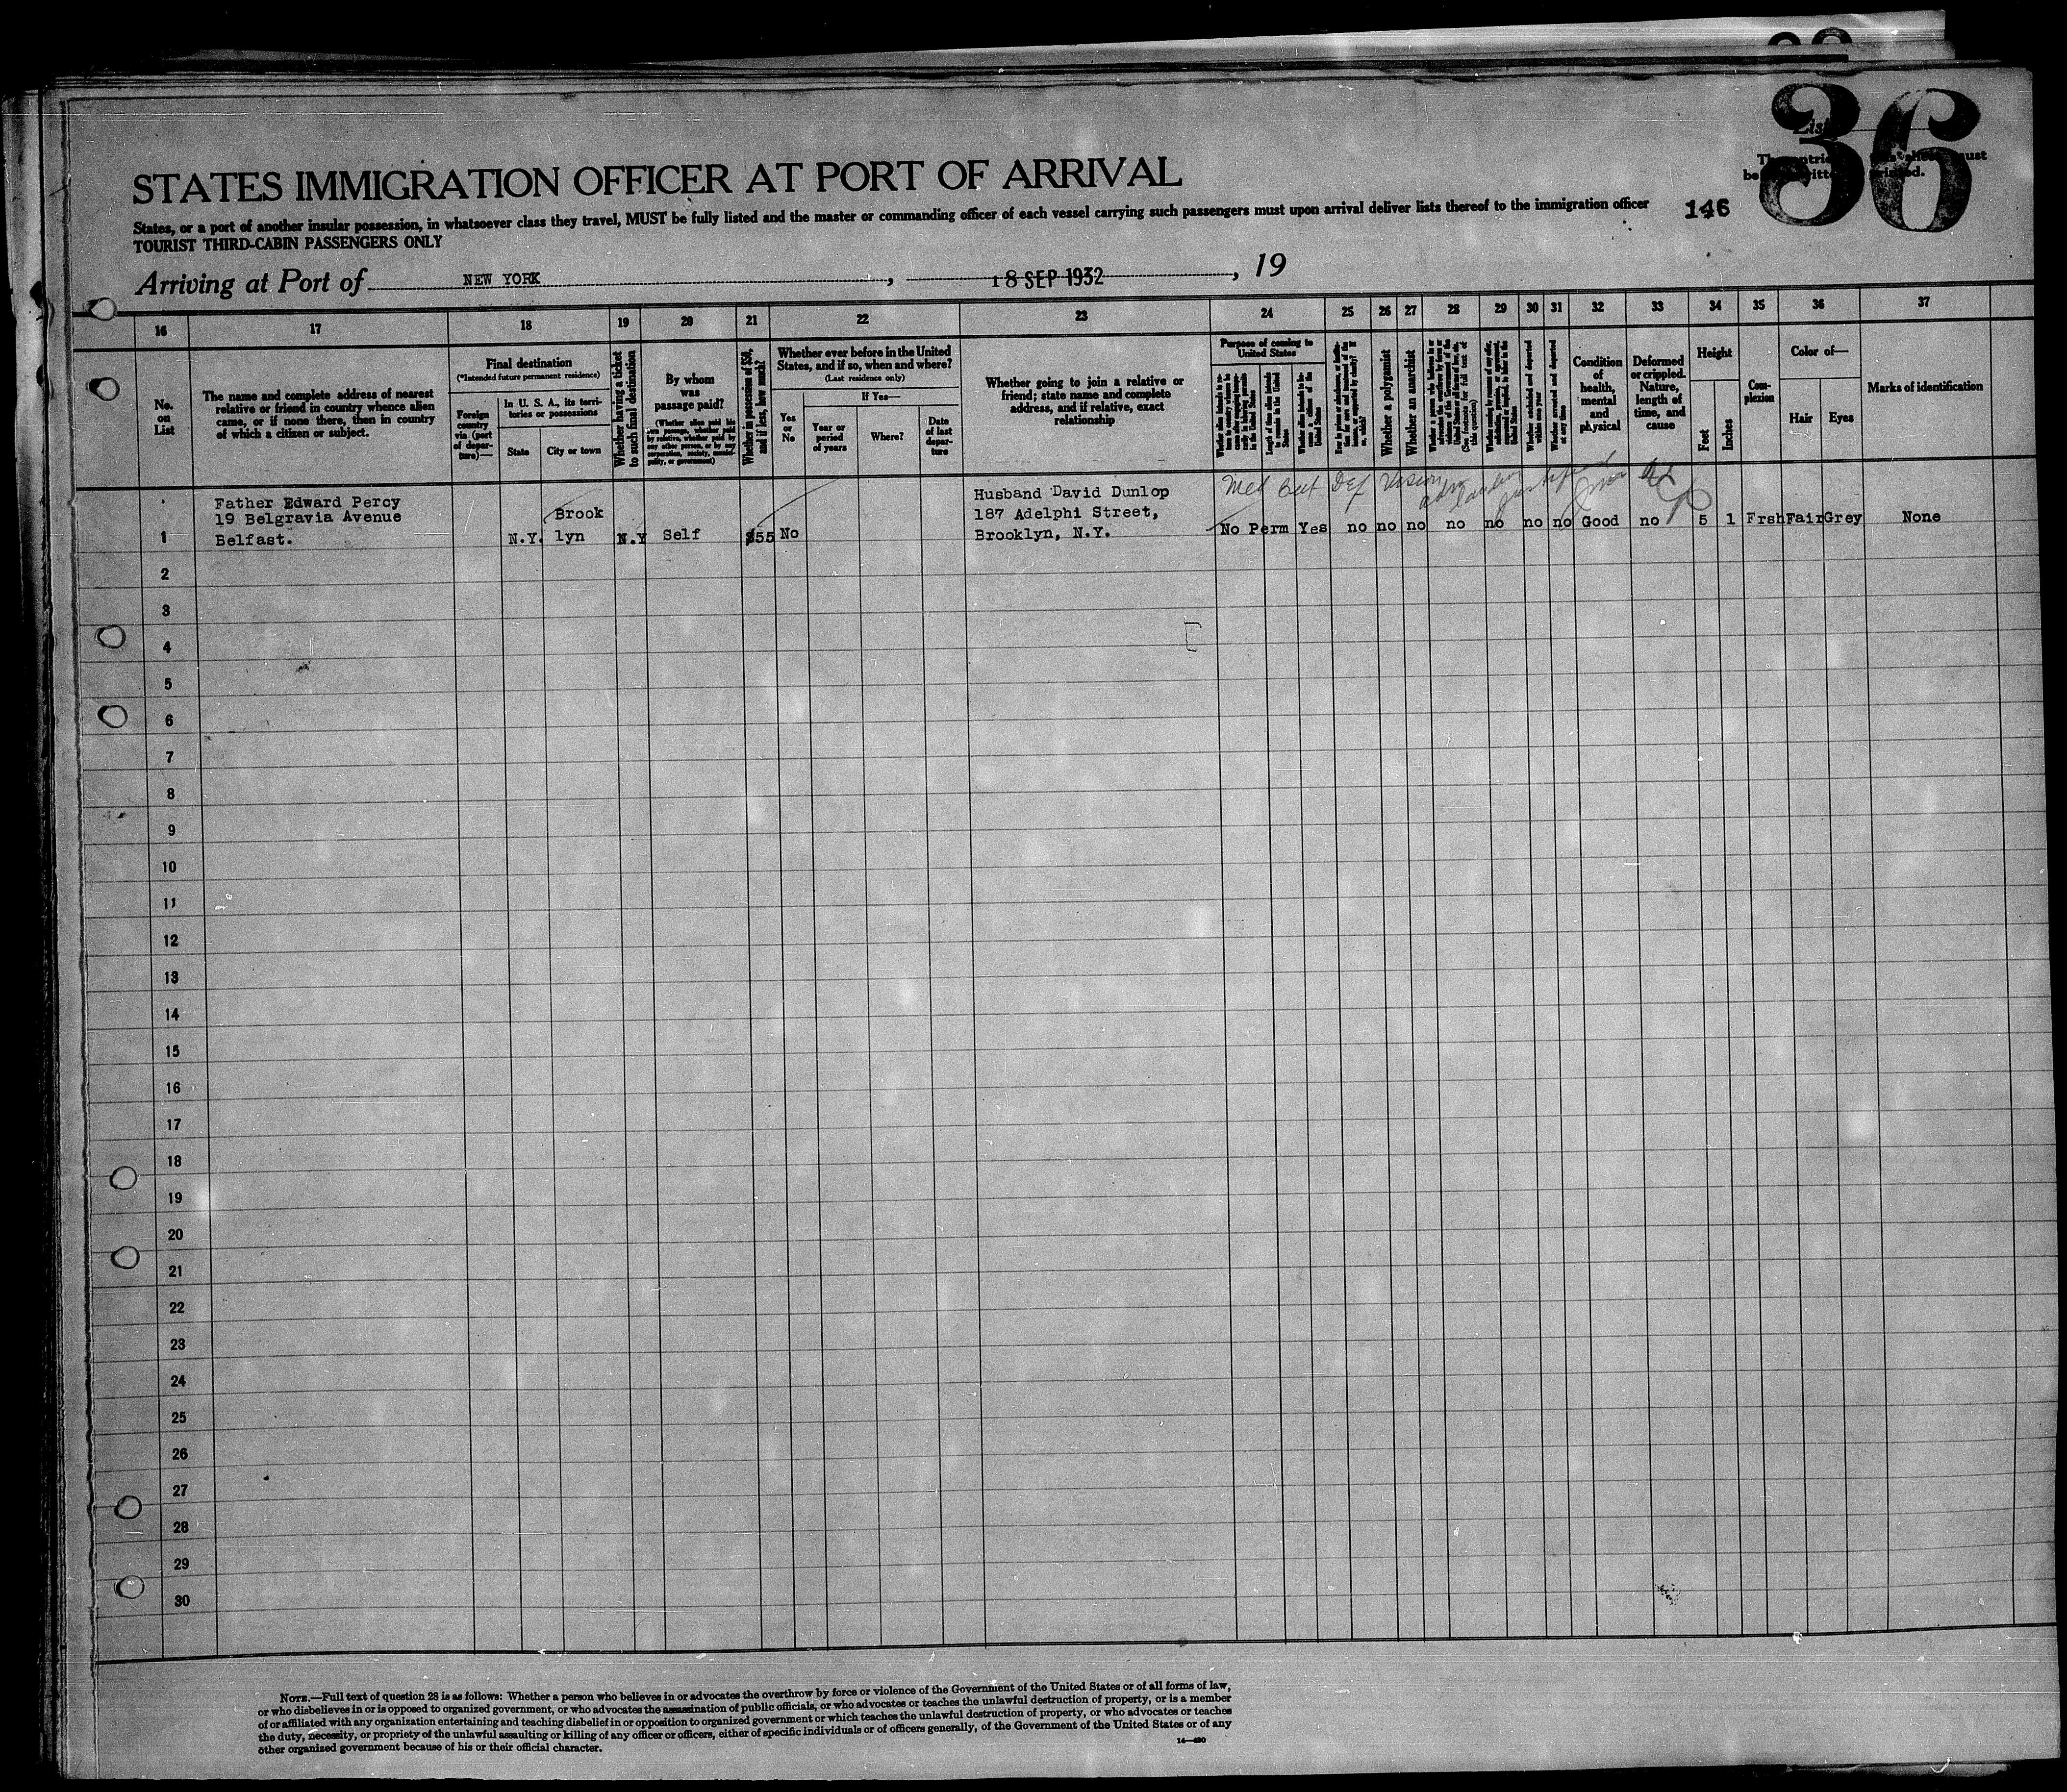 36
List
146
STATES IMMIGRATION OFFICER AT PORT OF ARRIVAL
States, or a port of another insular possession, in whatsoever class they travel, MUST be fully listed and the master or commanding officer of each vessel carrying such passengers must upon arrival deliver lists thereof to the immigration officer
TOURIST THIRD-CABIN PASSENGERS ONLY
Arriving at Port of NEW YORK, 18 SEP 1932, 19
16 17 18 19 20 21 22 23 24 25 26 27 28 29 30 31 32 33 34 35 36 37
No. on List
The name and complete address of nearest
relative or friend in country whence alien
came, or if none there, then in country
of which a citizen or subject.
Final destination
(*Intended future permanent residence)
Foreign country via (port of departure)—
In U. S. A., its territories or possessions
State
City or town
Whether having a ticket
to such final destination
By whom
was
passage paid?
(Whether alien paid his
own passage, whether paid
by relative, whether paid by
any other person, or by any
corporation, society, municipality, or government)
Whether in possession of $50,
and if less, how much?
Whether ever before in the United
States, and if so, when and where?
(Last residence only)
Yes or No
If Yes—
Year or period of years
Where?
Date of last departure
Whether going to join a relative or
friend; state name and complete
address, and if relative, exact
relationship
Purpose of coming to
United States
Length of time alien intends to remain in the United States
Whether a polygamist
Whether an anarchist
(See footnote for full text of this question)
Whether arrested and deported at any time
Condition of health, mental and physical
Deformed or crippled. Nature, length of time, and cause
Height
Feet
Inches
Complexion
Color of—
Hair
Eyes
Marks of identification
Med Cert Def Vision
Father Edward Percy
19 Belgravia Avenue
Belfast.
1 N.Y. Brook lyn N.Y Self $55 No
Husband David Dunlop
187 Adelphi Street,
Brooklyn, N.Y.
No Perm Yes no no no no no no no Good no 5 1 Frsh Fair Grey None
2
3
4
5
6
7
8
9
10
11
12
13
14
15
16
17
18
19
20
21
22
23
24
25
26
27
28
29
30
NOTE.—Full text of question 28 is as follows: Whether a person who believes in or advocates the overthrow by force or violence of the Government of the United States or of all forms of law,
or who disbelieves in or is opposed to organized government, or who advocates the assassination of public officials, or who advocates or teaches the unlawful destruction of property, or is a member
of or affiliated with any organization entertaining and teaching disbelief in or opposition to organized government or which teaches the unlawful destruction of property, or who advocates or teaches
the duty, necessity, or propriety of the unlawful assaulting or killing of any officer or officers, either of specific individuals or of officers generally, of the Government of the United States or of any
other organized government because of his or their official character.
14—430